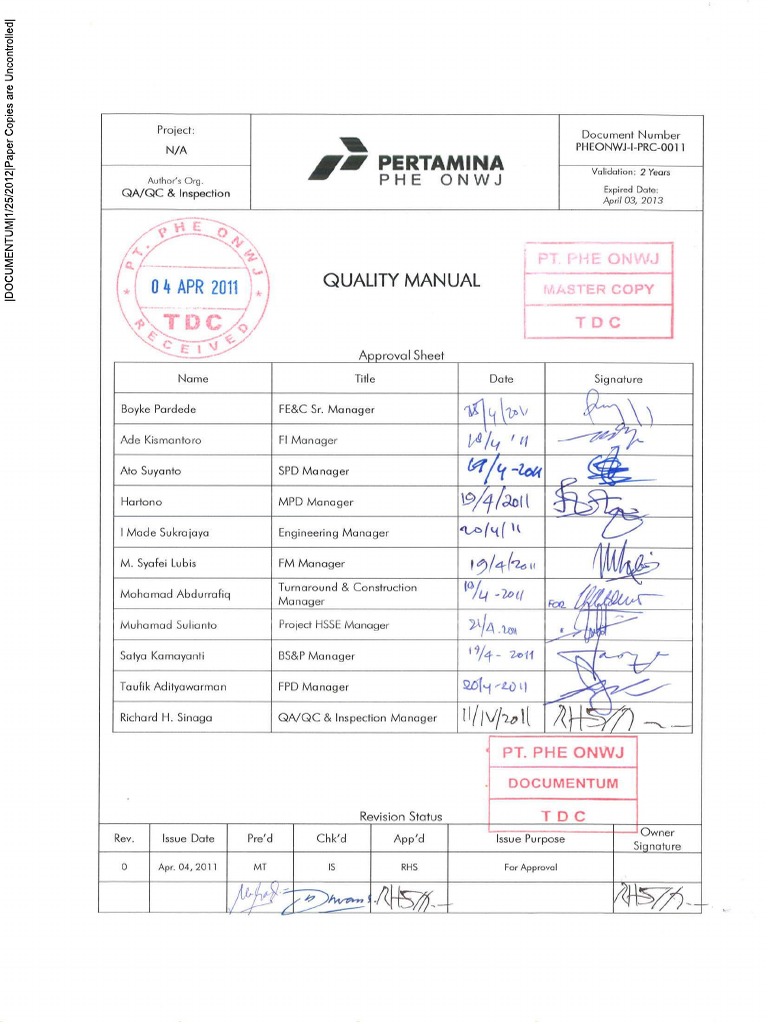 |DOCUMENTUM|1/25/2012|Paper Copies are Uncontrolled|
Project:
N/A
Author's Org.
QA/QC & Inspection
PERTAMINA
PHE ONWJ
Document Number
PHEONWJ-I-PRC-0011
Validation: 2 Years
Expired Date:
April 03, 2013
PT. PHE ONWJ
04 APR 2011
TDC
RECEIVED
QUALITY MANUAL
PT. PHE ONWJ
MASTER COPY
TDC
Approval Sheet
Name Title Date Signature
Boyke Pardede FE&C Sr. Manager
Ade Kismantoro FI Manager 18/4 '11
Ato Suyanto SPD Manager 19/4-2011
Hartono MPD Manager 19/4/2011
I Made Sukrajaya Engineering Manager 20/4/11
M. Syafei Lubis FM Manager 19/4/2011
Mohamad Abdurrafiq Turnaround & Construction Manager /4-2011 FOR
Muhamad Sulianto Project HSSE Manager 21/4.2011
Satya Kamayanti BS&P Manager 19/4-2011
Taufik Adityawarman FPD Manager 20/4-2011
Richard H. Sinaga QA/QC & Inspection Manager 11/IV/2011
PT. PHE ONWJ
DOCUMENTUM
TDC
Revision Status
Rev. Issue Date Pre'd Chk'd App'd Issue Purpose Owner Signature
0 Apr. 04, 2011 MT IS RHS For Approval